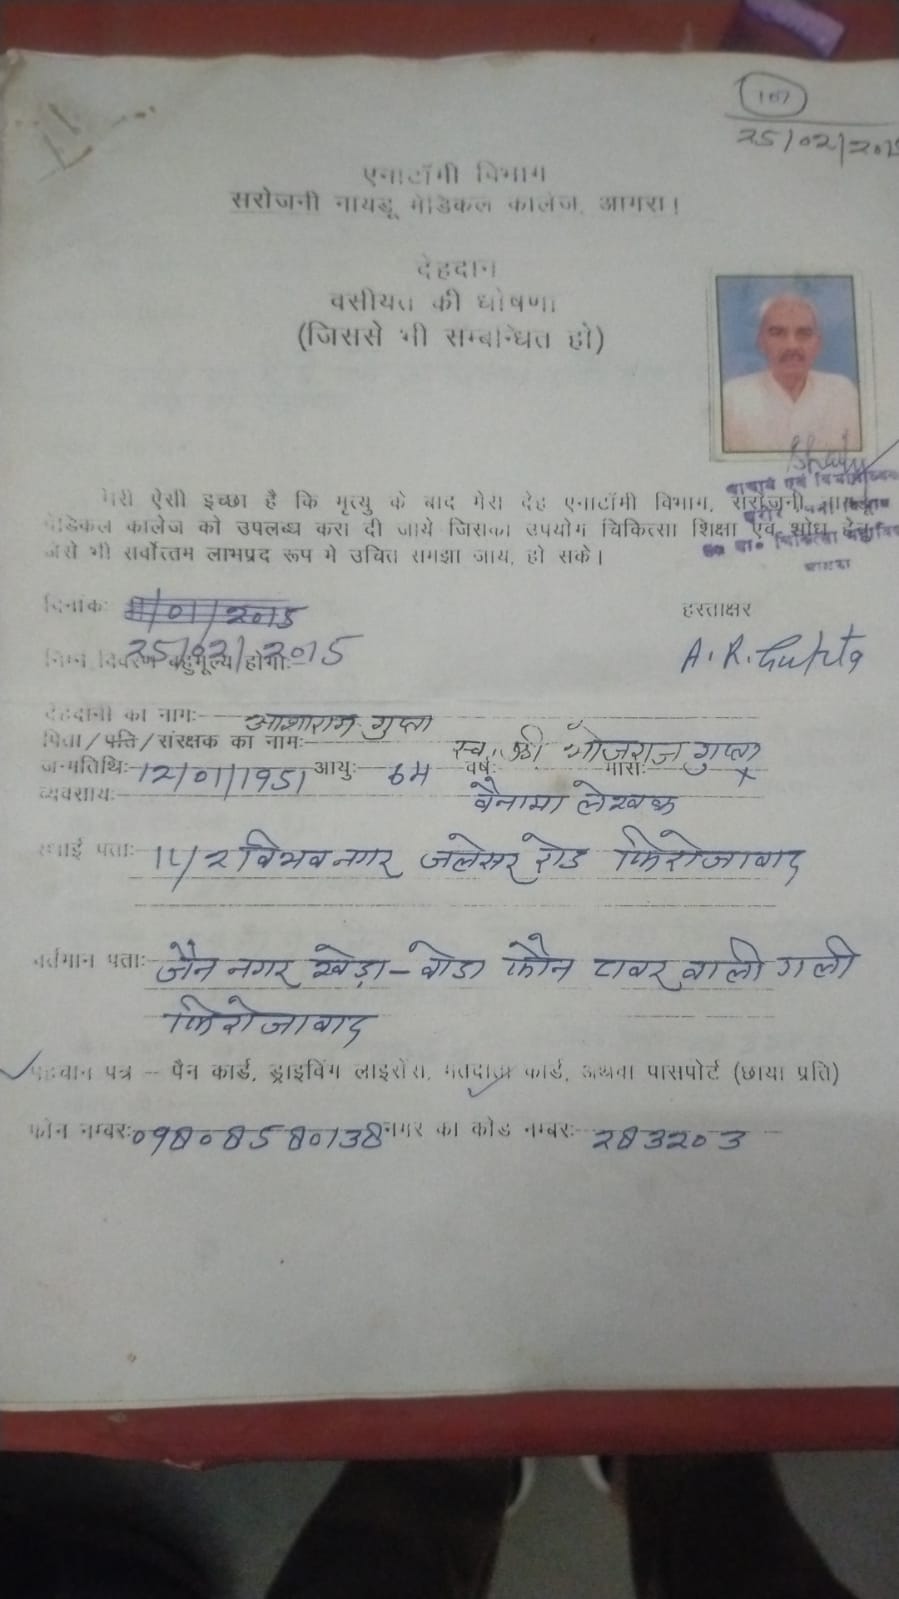 167
25/02/201
एनाटॉमी विभाग
सरोजनी नायडू मेडिकल कालेज, आगरा।
देहदान
वसीयत की घोषणा
(जिससे भी सम्बन्धित हो)
मेरी ऐसी इच्छा है कि मृत्यु के बाद मेरा देह एनाटॉमी विभाग, सरोजनी
मेडिकल कालेज को उपलब्ध करा दी जाये जिसका उपयोग चिकित्सा शिक्षा एवं शोध हेतु
जैसे भी सर्वोत्तम लाभप्रद रूप मे उचित समझा जाय, हो सके।
आगरा
दिनांकः /01/2015
हस्ताक्षर
25/02/2015
A.R.Gupta
निम्न विवरण बहुमूल्य होगाः
देहदानी का नामः- आशाराम गुप्ता
पिता/पति/संरक्षक का नामः- स्व. श्री भोजराज गुप्ता
जन्मतिथिः- 12/01/1951 आयुः- 64 वर्षः मासः x
व्यवसायः- बैनामा लेखक
स्थाई पताः- 14/2 विभव नगर जलेसर रोड फिरोजाबाद
वर्तमान पताः- जैन नगर खेड़ा- फोन टावर वाली गली
फिरोजाबाद
पहचान पत्र – पैन कार्ड, ड्राइविंग लाइसेंस, मतदाता कार्ड, अथवा पासपोर्ट (छाया प्रति)
फोन नम्बरः 09808580138 नगर का कोड नम्बरः- 283203